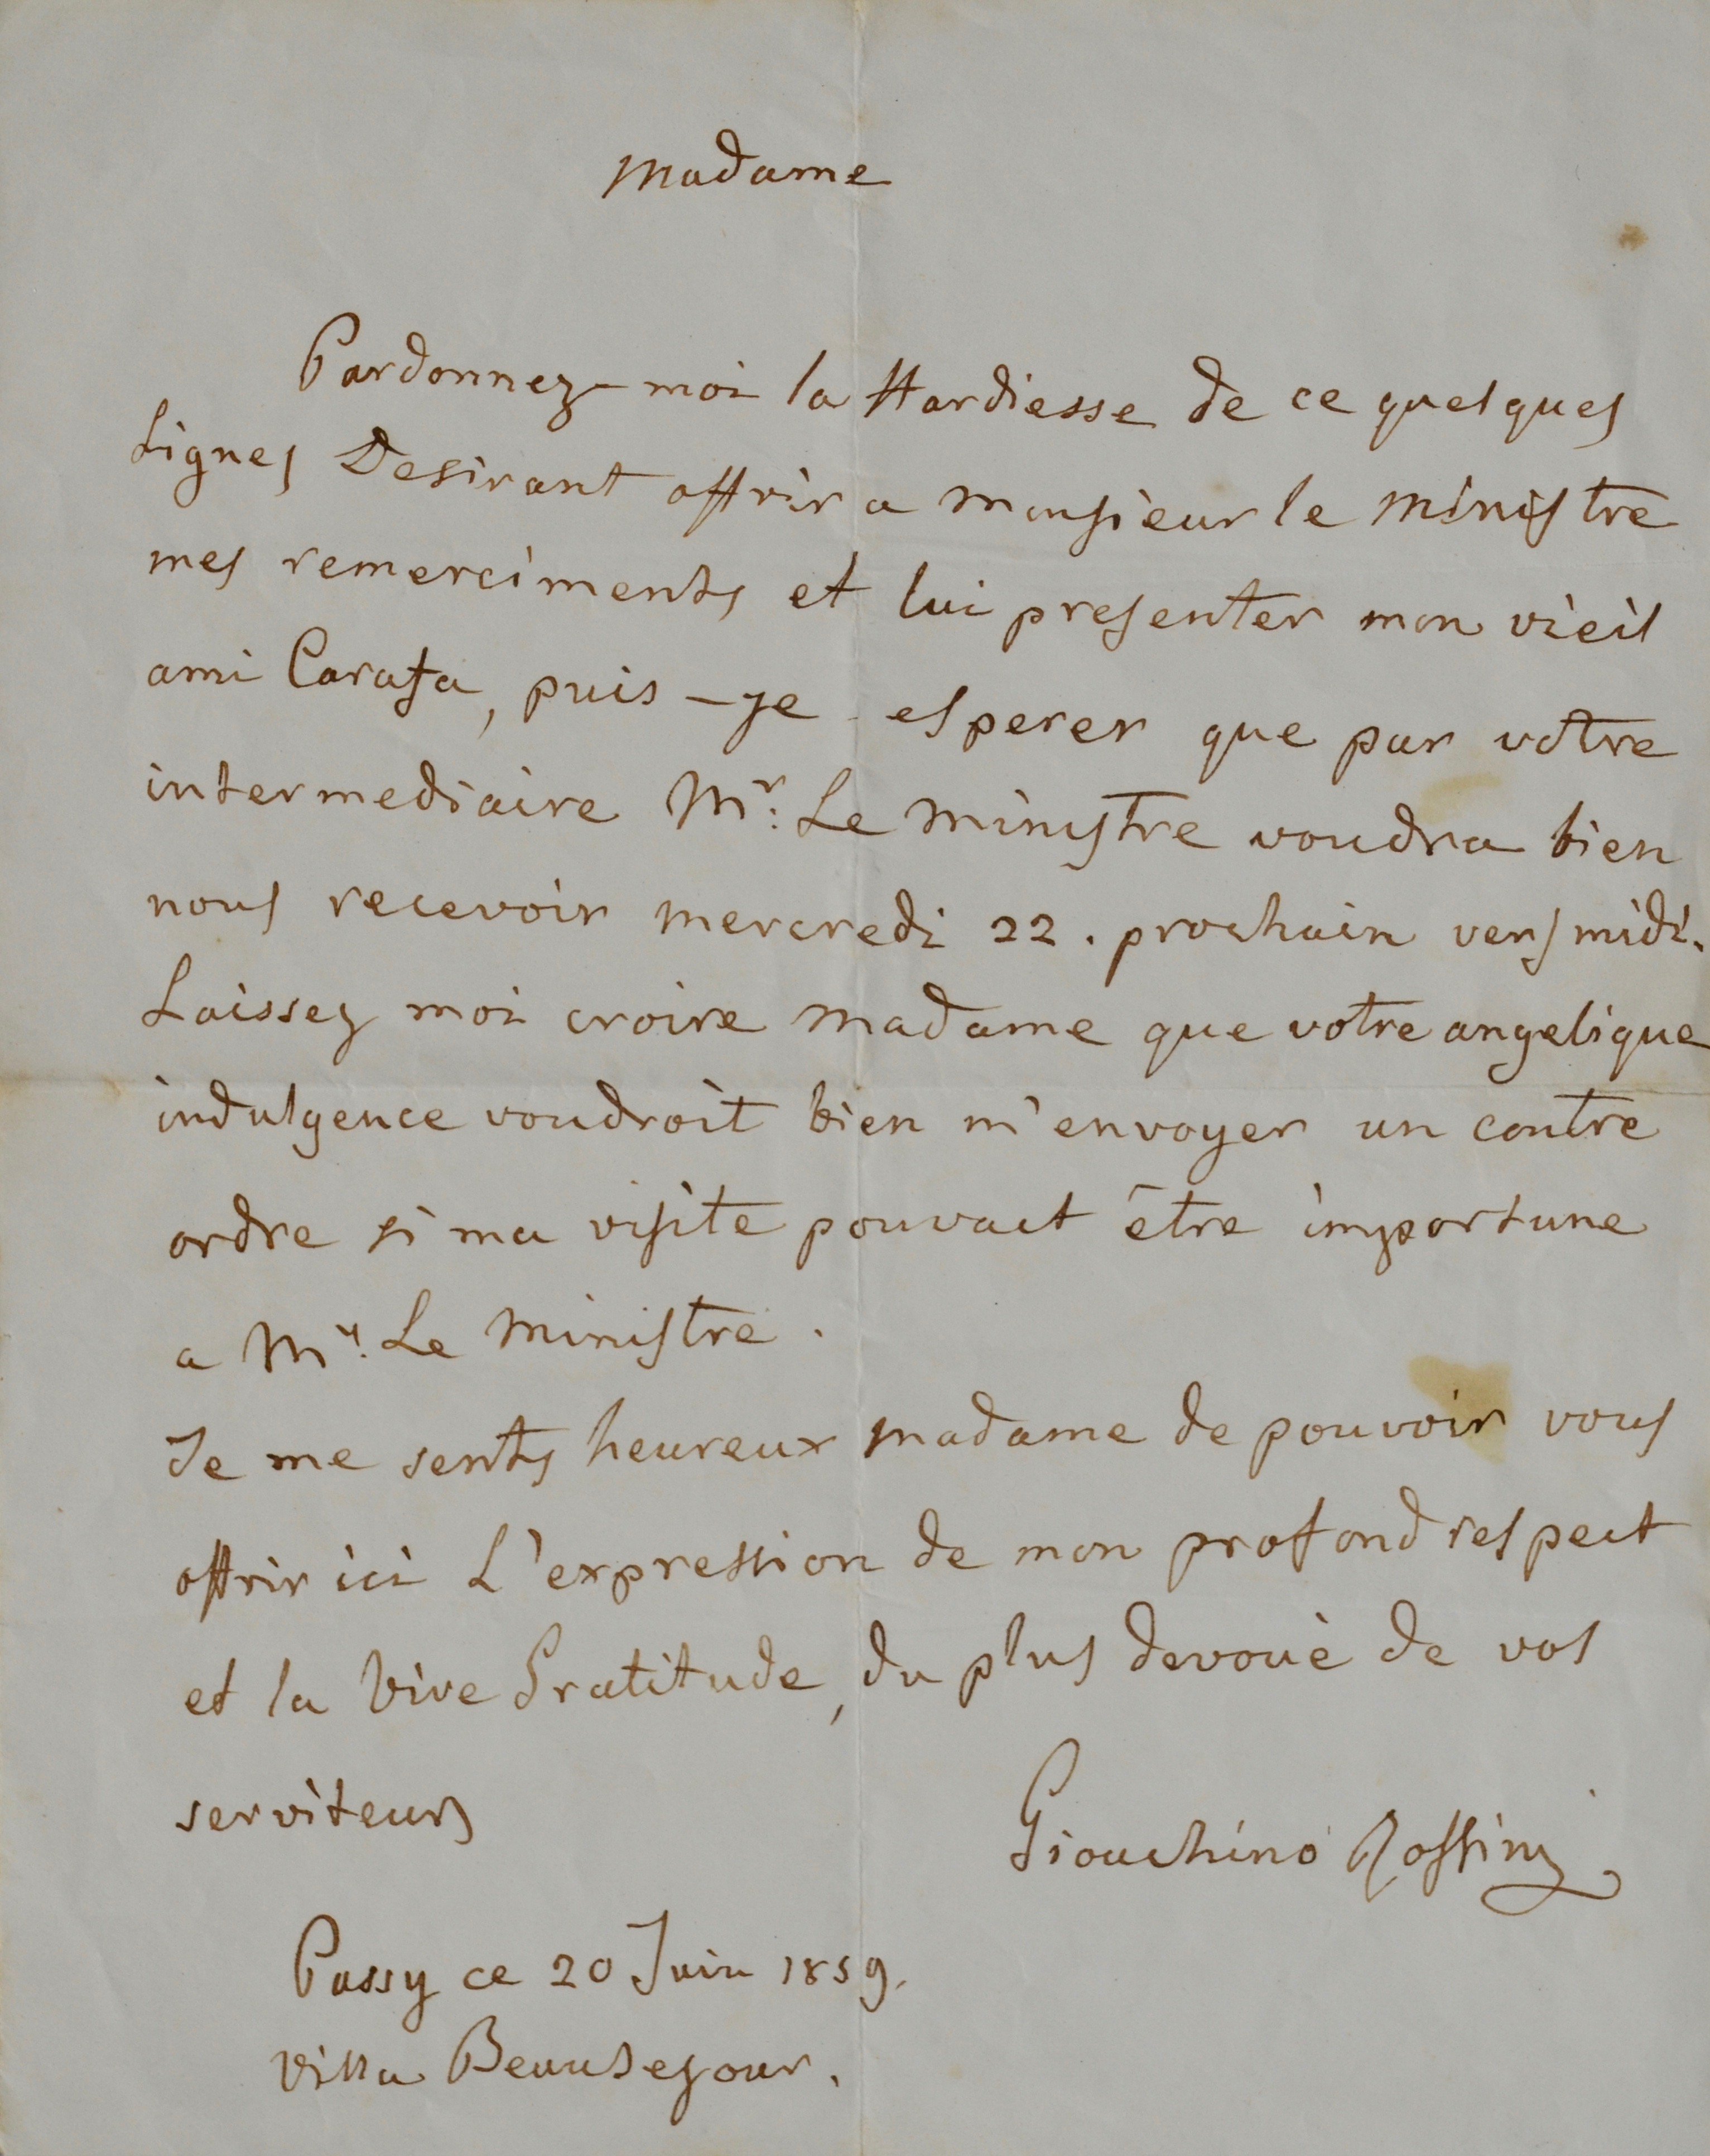 Madame
Pardonnez-moi la Hardiesse de ce quelques
Lignes Desirant offrir a monsieur le Ministre
mes remerciments et lui presenter mon vieil
ami Carafa, puis-je esperer que par votre
intermediaire Mr. Le Ministre voudra bien
nous recevoir mercredi 22. prochain vers midi.
Laissez moi croire Madame que votre angelique
indulgence voudroit bien m'envoyer un contre
ordre si ma visite pouvait être importune
a Mr. Le Ministre.
Je me sents heureux Madame de pouvoir vous
offrir ici L'expression de mon profond respect
et la Vive Gratitude, du plus devouè de vos
serviteurs
Gioachino Rossini
Passy ce 20 Juin 1859.
Villa Beausejour.